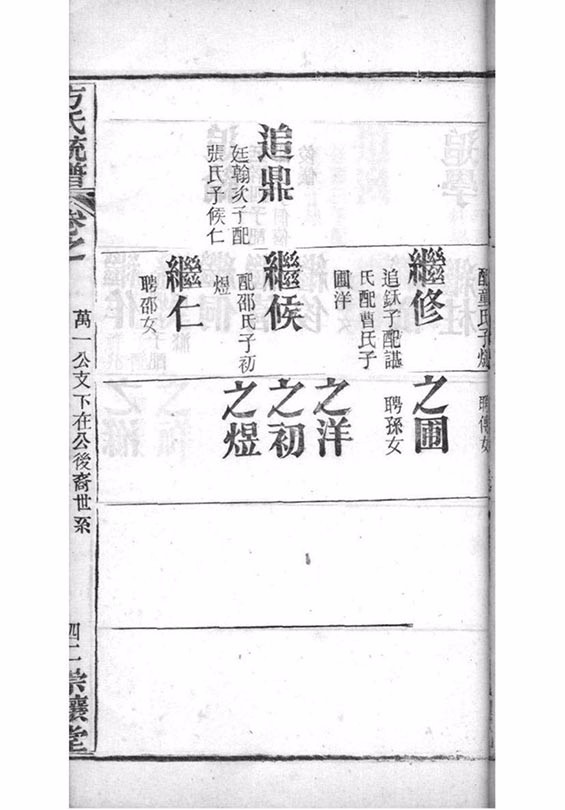 追鼎
廷翰次子配
張氏子候仁
配童氏子
繼修
追子配諶
氏配曹氏子
圃洋
繼候
配邵氏子初
煜
繼仁
聘邵女
聘傅女
之圃
聘孫女
之洋
之初
之煜
方氏統譜
卷之一
萬一公文下在公後裔世系
四二
崇讓堂